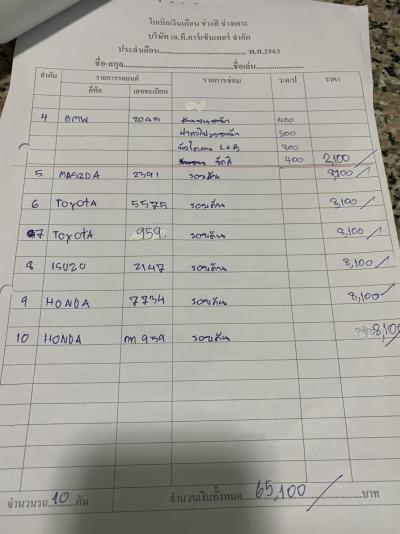 ใบเบิกเงินเดือน ช่างสี ช่างเคาะ
บริษัท เจ.ที.คาร์เซ็นเตอร์ จำกัด
ประจำเดือน พ.ศ.2563
ชื่อ-สกุล ชื่อเล่น
ลำดับ รายการรถยนต์ รายการซ่อม ว/ด/ป ราคา
ยี่ห้อ เลขทะเบียน
4 BMW 400
500
L+R 800
400 2,100
5 MAZDA 2391 รอบคัน 8,100
6 TOYOTA 5575 รอบคัน 8,100
7 TOYOTA 959 รอบคัน 8,100
8 ISUZU 2147 รอบคัน 8,100
9 HONDA 7734 รอบคัน 8,100
10 HONDA 939 รอบคัน 8,100
จำนวนรถ 10 คัน จำนวนเงินทั้งหมด 65,100 บาท